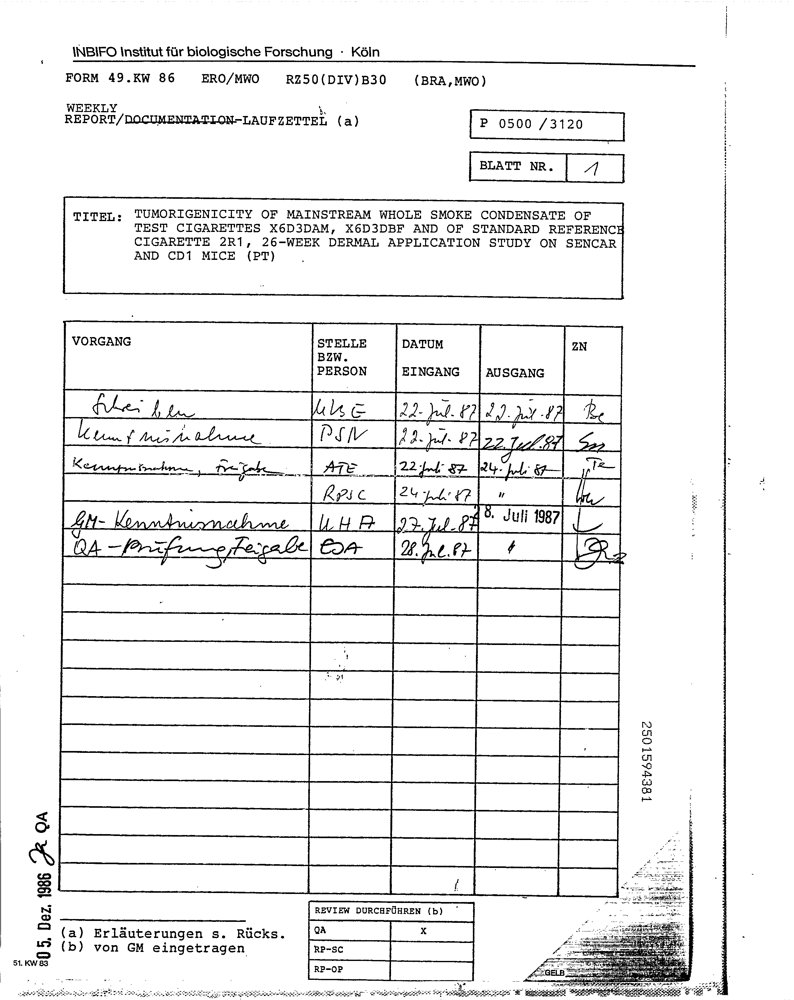 INBIFO Institut für biologische Forschung · Köln
FORM 49.KW 86 ERO/MWO RZ50(DIV)B30 (BRA,MWO)
WEEKLY
REPORT/DOCUMENTATION-LAUFZETTEL (a)
P 0500 /3120
BLATT NR. 1
TITEL: TUMORIGENICITY OF MAINSTREAM WHOLE SMOKE CONDENSATE OF
TEST CIGARETTES X6D3DAM, X6D3DBF AND OF STANDARD REFERENCE
CIGARETTE 2R1, 26-WEEK DERMAL APPLICATION STUDY ON SENCAR
AND CD1 MICE (PT)
VORGANG STELLE BZW. PERSON DATUM EINGANG AUSGANG ZN
Schreiben 22. Jul. 87 22. Jul. 87 Be
Kenntnisnahme PSN 22. Jul. 87 22. Jul. 87 Sm
Kenntnisnahme, Freigabe ATE 22 Juli 87 24. Juli 87 Te
RPSC 24 Juli 87 "
GM-Kenntnisnahme UHA 27. Jul. 87 8. Juli 1987
QA-Prüfung, Feigabe 28. Jul. 87 "
2501594381
05. Dez. 1986 QA
(a) Erläuterungen s. Rücks.
(b) von GM eingetragen
51. KW 83
REVIEW DURCHFÜHREN (b)
QA X
RP-SC
RP-OP
GELB